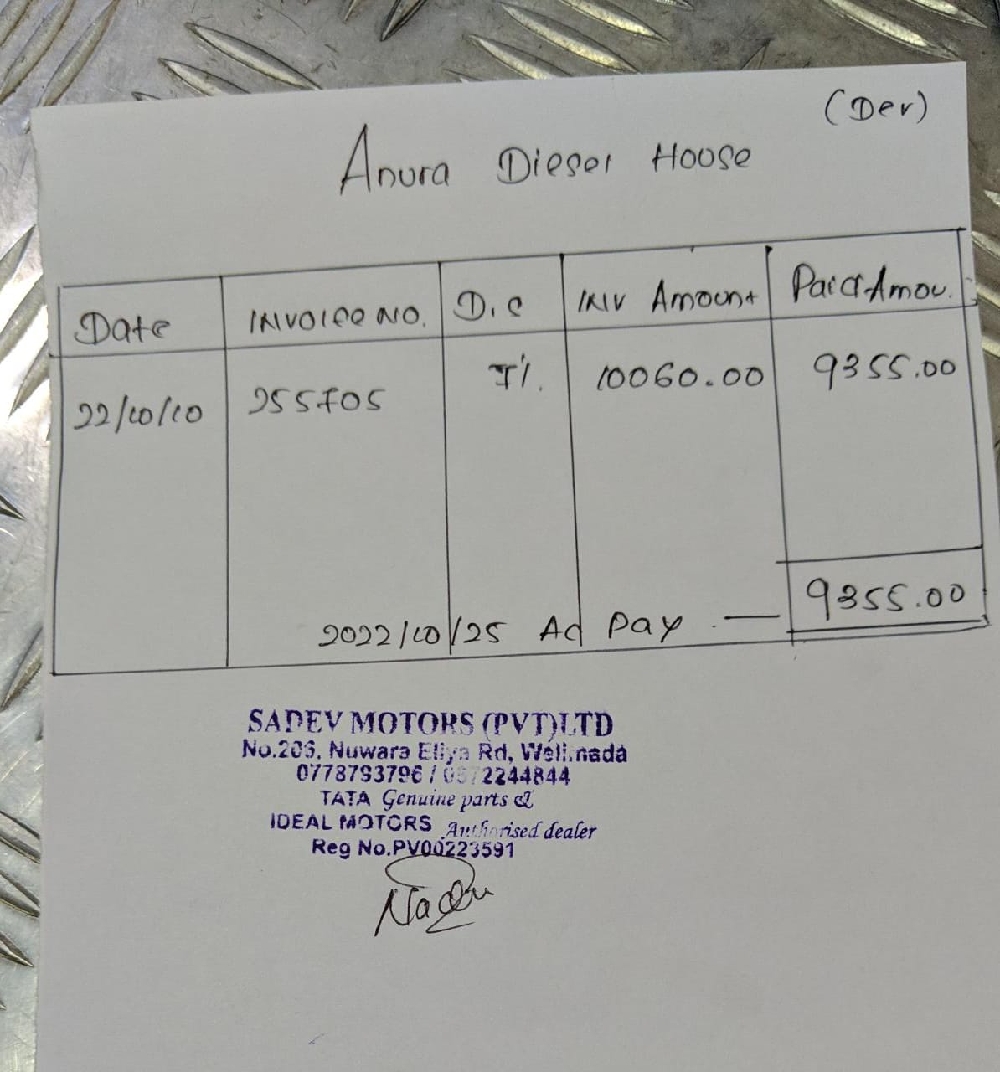 (Dev)
Anura Diesel House
Date INVOICE NO. D.C INV Amount Paid Amou.
22/10/10 255705 7%. 10060.00 9355.00
2022/10/25 Ac Pay — 9355.00
SADEV MOTORS (PVT)LTD
No.206, Nuwara Eliya Rd, Welimada
0778793796 / 0572244844
TATA Genuine parts &
IDEAL MOTORS Authorised dealer
Reg No.PV00223591